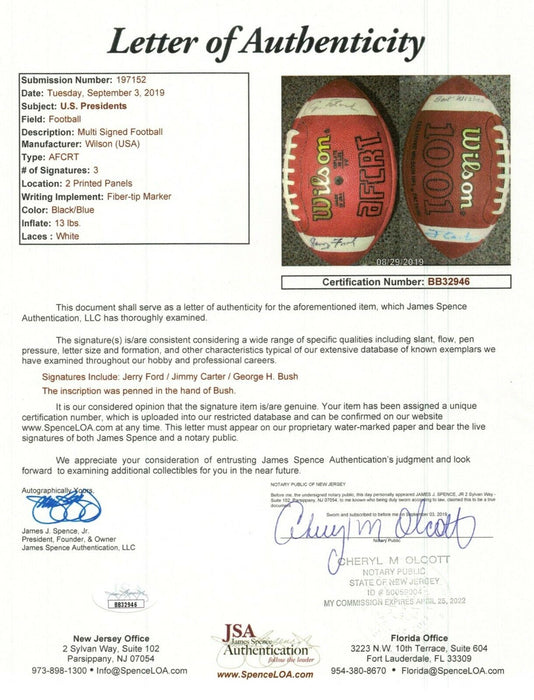 Letter of Authenticity
Submission Number: 197152
Date: Tuesday, September 3, 2019
Subject: U.S. Presidents
Field: Football
Description: Multi Signed Football
Manufacturer: Wilson (USA)
Type: AFCRT
# of Signatures: 3
Location: 2 Printed Panels
Writing Implement: Fiber-tip Marker
Color: Black/Blue
Inflate: 13 lbs.
Laces: White
Wilson
AFCRT
Jerry Ford
Best Wishes
Wilson
1001
08/29/2019
Certification Number: BB32946
This document shall serve as a letter of authenticity for the aforementioned item, which James Spence
Authentication, LLC has thoroughly examined.
The signature(s) is/are consistent considering a wide range of specific qualities including slant, flow, pen
pressure, letter size and formation, and other characteristics typical of our extensive database of known exemplars we
have examined throughout our hobby and professional careers.
Signatures Include: Jerry Ford / Jimmy Carter / George H. Bush
The inscription was penned in the hand of Bush.
It is our considered opinion that the signature item is/are genuine. Your item has been assigned a unique
certification number, which is uploaded into our restricted database and can be confirmed on our website
www.SpenceLOA.com at any time. This letter must appear on our proprietary water-marked paper and bear the live
signatures of both James Spence and a notary public.
We appreciate your consideration of entrusting James Spence Authentication's judgment and look
forward to examining additional collectibles for you in the near future.
Autographically Yours,
James J. Spence, Jr.
President, Founder, & Owner
James Spence Authentication, LLC
NOTARY PUBLIC OF NEW JERSEY
Before me, the undersigned notary public, this day personally appeared JAMES J. SPENCE, JR 2 Sylvan Way -
Suite 102, Parsippany, NJ 07054, to me known who being duly sworn according to law, deposed, claimed this to be a true
document.
Sworn and subscribed to before me on September 03, 2019
Cheryl M Olcott
Notary Public
CHERYL M OLCOTT
NOTARY PUBLIC
STATE OF NEW JERSEY
MY COMMISSION EXPIRES APRIL 25, 2022
BB32946
New Jersey Office
2 Sylvan Way, Suite 102
Parsippany, NJ 07054
973-898-1300 • Info@SpenceLOA.com
JSA
James Spence
Authentication
follow the leader
www.SpenceLOA.com
Florida Office
3223 N.W. 10th Terrace, Suite 604
Fort Lauderdale, FL 33309
954-380-8670 • Florida@SpenceLOA.com